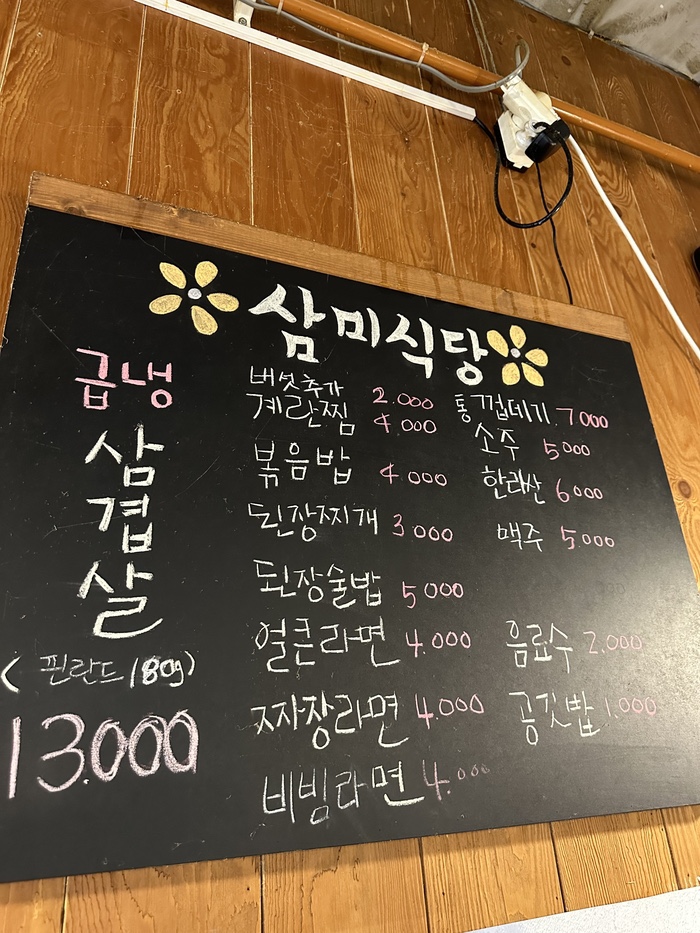 삼미식당
급냉
삼
겹
살
(핀란드 180g)
13.000
버섯추가 2.000
계란찜 4.000
볶음밥 4.000
된장찌개 3.000
된장술밥 5.000
얼큰라면 4.000
짜장라면 4.000
비빔라면 4.000
통껍데기 7000
소주 5000
한라산 6000
맥주 5.000
음료수 2.000
공깃밥 1.000